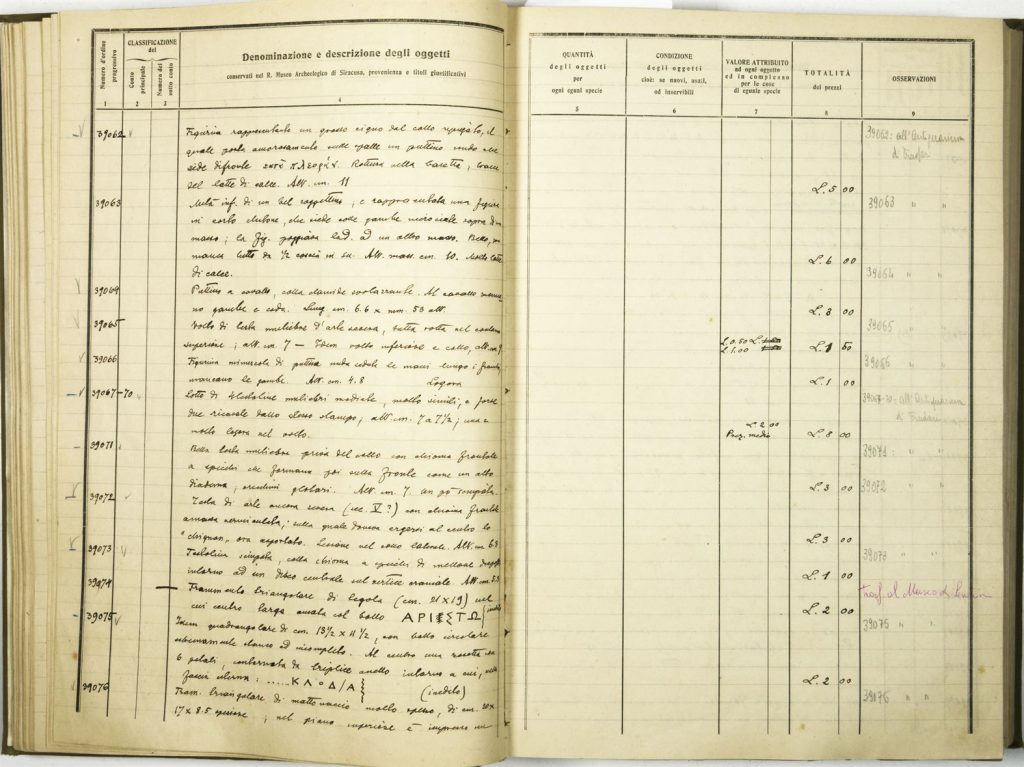 Numero d'ordine progressivo
CLASSIFICAZIONE del
Conto principale
Numero del sotto conto
Denominazione e descrizione degli oggetti
conservati nel R. Museo Archeologico di Siracusa, provenienza e titoli giustificativi
1 2 3 4
39062 Figurina rappresentante un grosso cigno dal collo ripiegato, il
quale porta amorosamente sulle spalle un puttino nudo che
siede di fronte κατὰ πλευράν. Rottura nella basetta; tracce
del latte di calce. Alt. cm. 11
39063 Metà inf. di un bel rappettino; è rappresentata una figura
in corto chitone, che siede colle gambe incrociate sopra di un
masso; la fig. poggiava lad. ad un altro masso. Bello, ma
manca tutto da 1/2 coscia in su. Alt. mass. cm. 10. Molto latte
di calce.
39064 Puttino a cavallo, colla clamide svolazzante. Al cavallo manca-
no gambe e coda. Lung. cm. 6.6 x mm. 53 alt.
39065 Volto di testa muliebre d'arte severa, tutta rotta nel contorno
superiore; alt. cm 7 — Idem volto inferiore e collo, alt. cm 9
39066 Figurina minuscola di puttino nudo seduto le mani lungo i fianchi
mancano le gambe. Alt. cm. 4.8 Logora
39067-70 Lotto di 4 testoline muliebri mediche, molto simili, e forse
due ricavate dallo stesso stampo; alt. cm. 7 a 7 1/2; una è
molto logora nel volto.
39071 Bella testa muliebre priva del collo con chioma frontale
a spicchi che formano poi sulla fronte come un alto
diadema, orecchini globari. Alt. cm. 7. Un pò sciupata.
39072 Testa di arte ancora severa (sec. V?) con chioma frontale
a massa vermiculata, sulla quale doveva ergersi al centro lo
"chignon", ora asportato. Lesione nel collo laterale. Alt. cm 6.3
39073 Testolina sciupata, colla chioma a spicchi di mellone disposti
intorno ad un disco centrale sul vertice craniale. Alt. cm 5.3
39074 Frammento triangolare di tegola (cm. 21 x 19) nel
cui centro larga ansata col bollo ΑΡΙΣΤΩ
39075 Idem quadrangolare di cm. 13 1/2 x 11 1/2, con bollo circolare
estremamente stanco ed incompleto. Al centro una rosetta con
6 petali, contornata da triplice anello intorno a cui, nella
fascia esterna: ..... ΚΛ ο Δ/Α (inedito)
39076 Fram. triangolare di mattonaccio molto spesso, di cm. 20 x
17 x 8.5 spessore; nel piano superiore è impresso un
QUANTITÀ degli oggetti per ogni eguali specie
CONDIZIONE degli oggetti cioè: se nuovi, usati, od inservibili
VALORE ATTRIBUITO ad ogni oggetto ed in complesso per le cose di eguale specie
TOTALITÀ dei prezzi
OSSERVAZIONI
5 6 7 8 9
39062: all'Antiquarium
di Tindari
L. 5 00
39063 " "
L. 6 00
39064 " "
L. 3 00
39065 " "
L. 0.50
L. 1.00 L. 1 50
39066 " "
L. 1 00
39067-70: all'Antiquarium
di Tindari
L. 2 00
Prez. medio L. 8 00
39071: " "
L. 3 00
39072
L. 3 00
39073 " "
L. 1 00
trasf. al Museo di
L. 2 00
39075 " "
L. 2 00
39076 " "